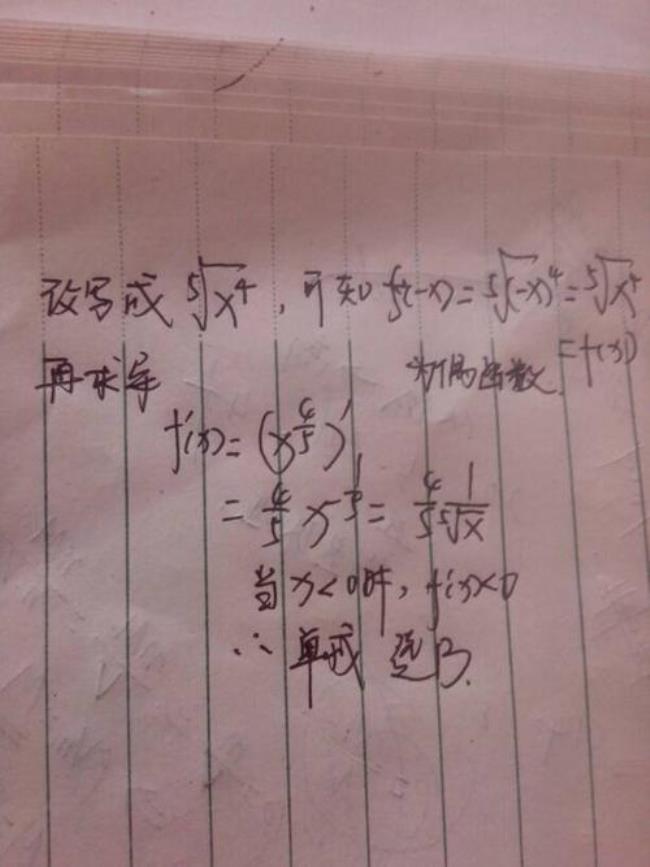 改写成 ⁵√x⁴，可知 f(-x) = ⁵√(-x)⁴ = ⁵√x⁴
= f(x)
再求导 为偶函数.
f'(x) = (x^(4/5))'
= 4/5 x^(-1/5) = 4/5 1/⁵√x
当 x<0时, f'(x)<0
∴ 单减 选B.